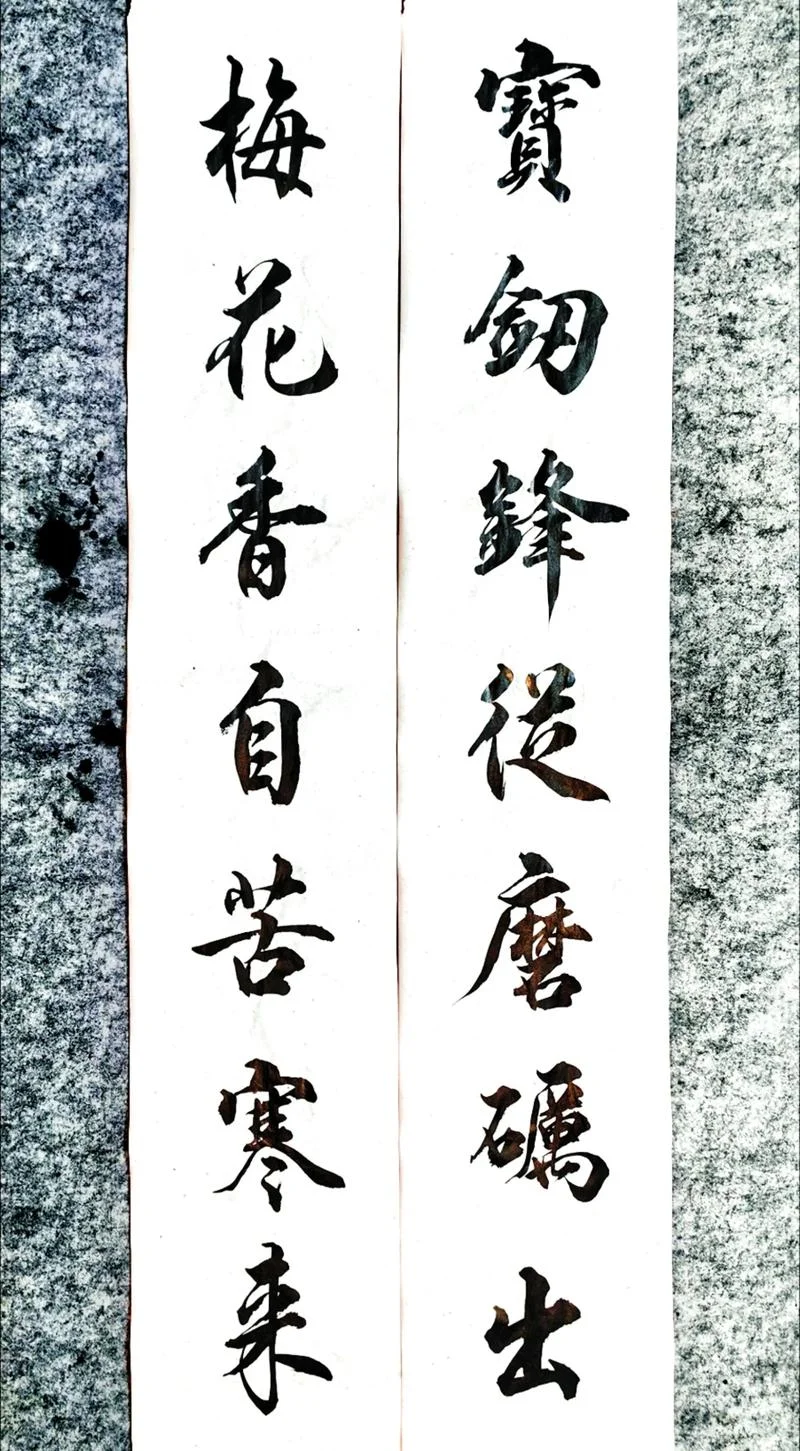 寶劒鋒從磨礪出
梅花香自苦寒来